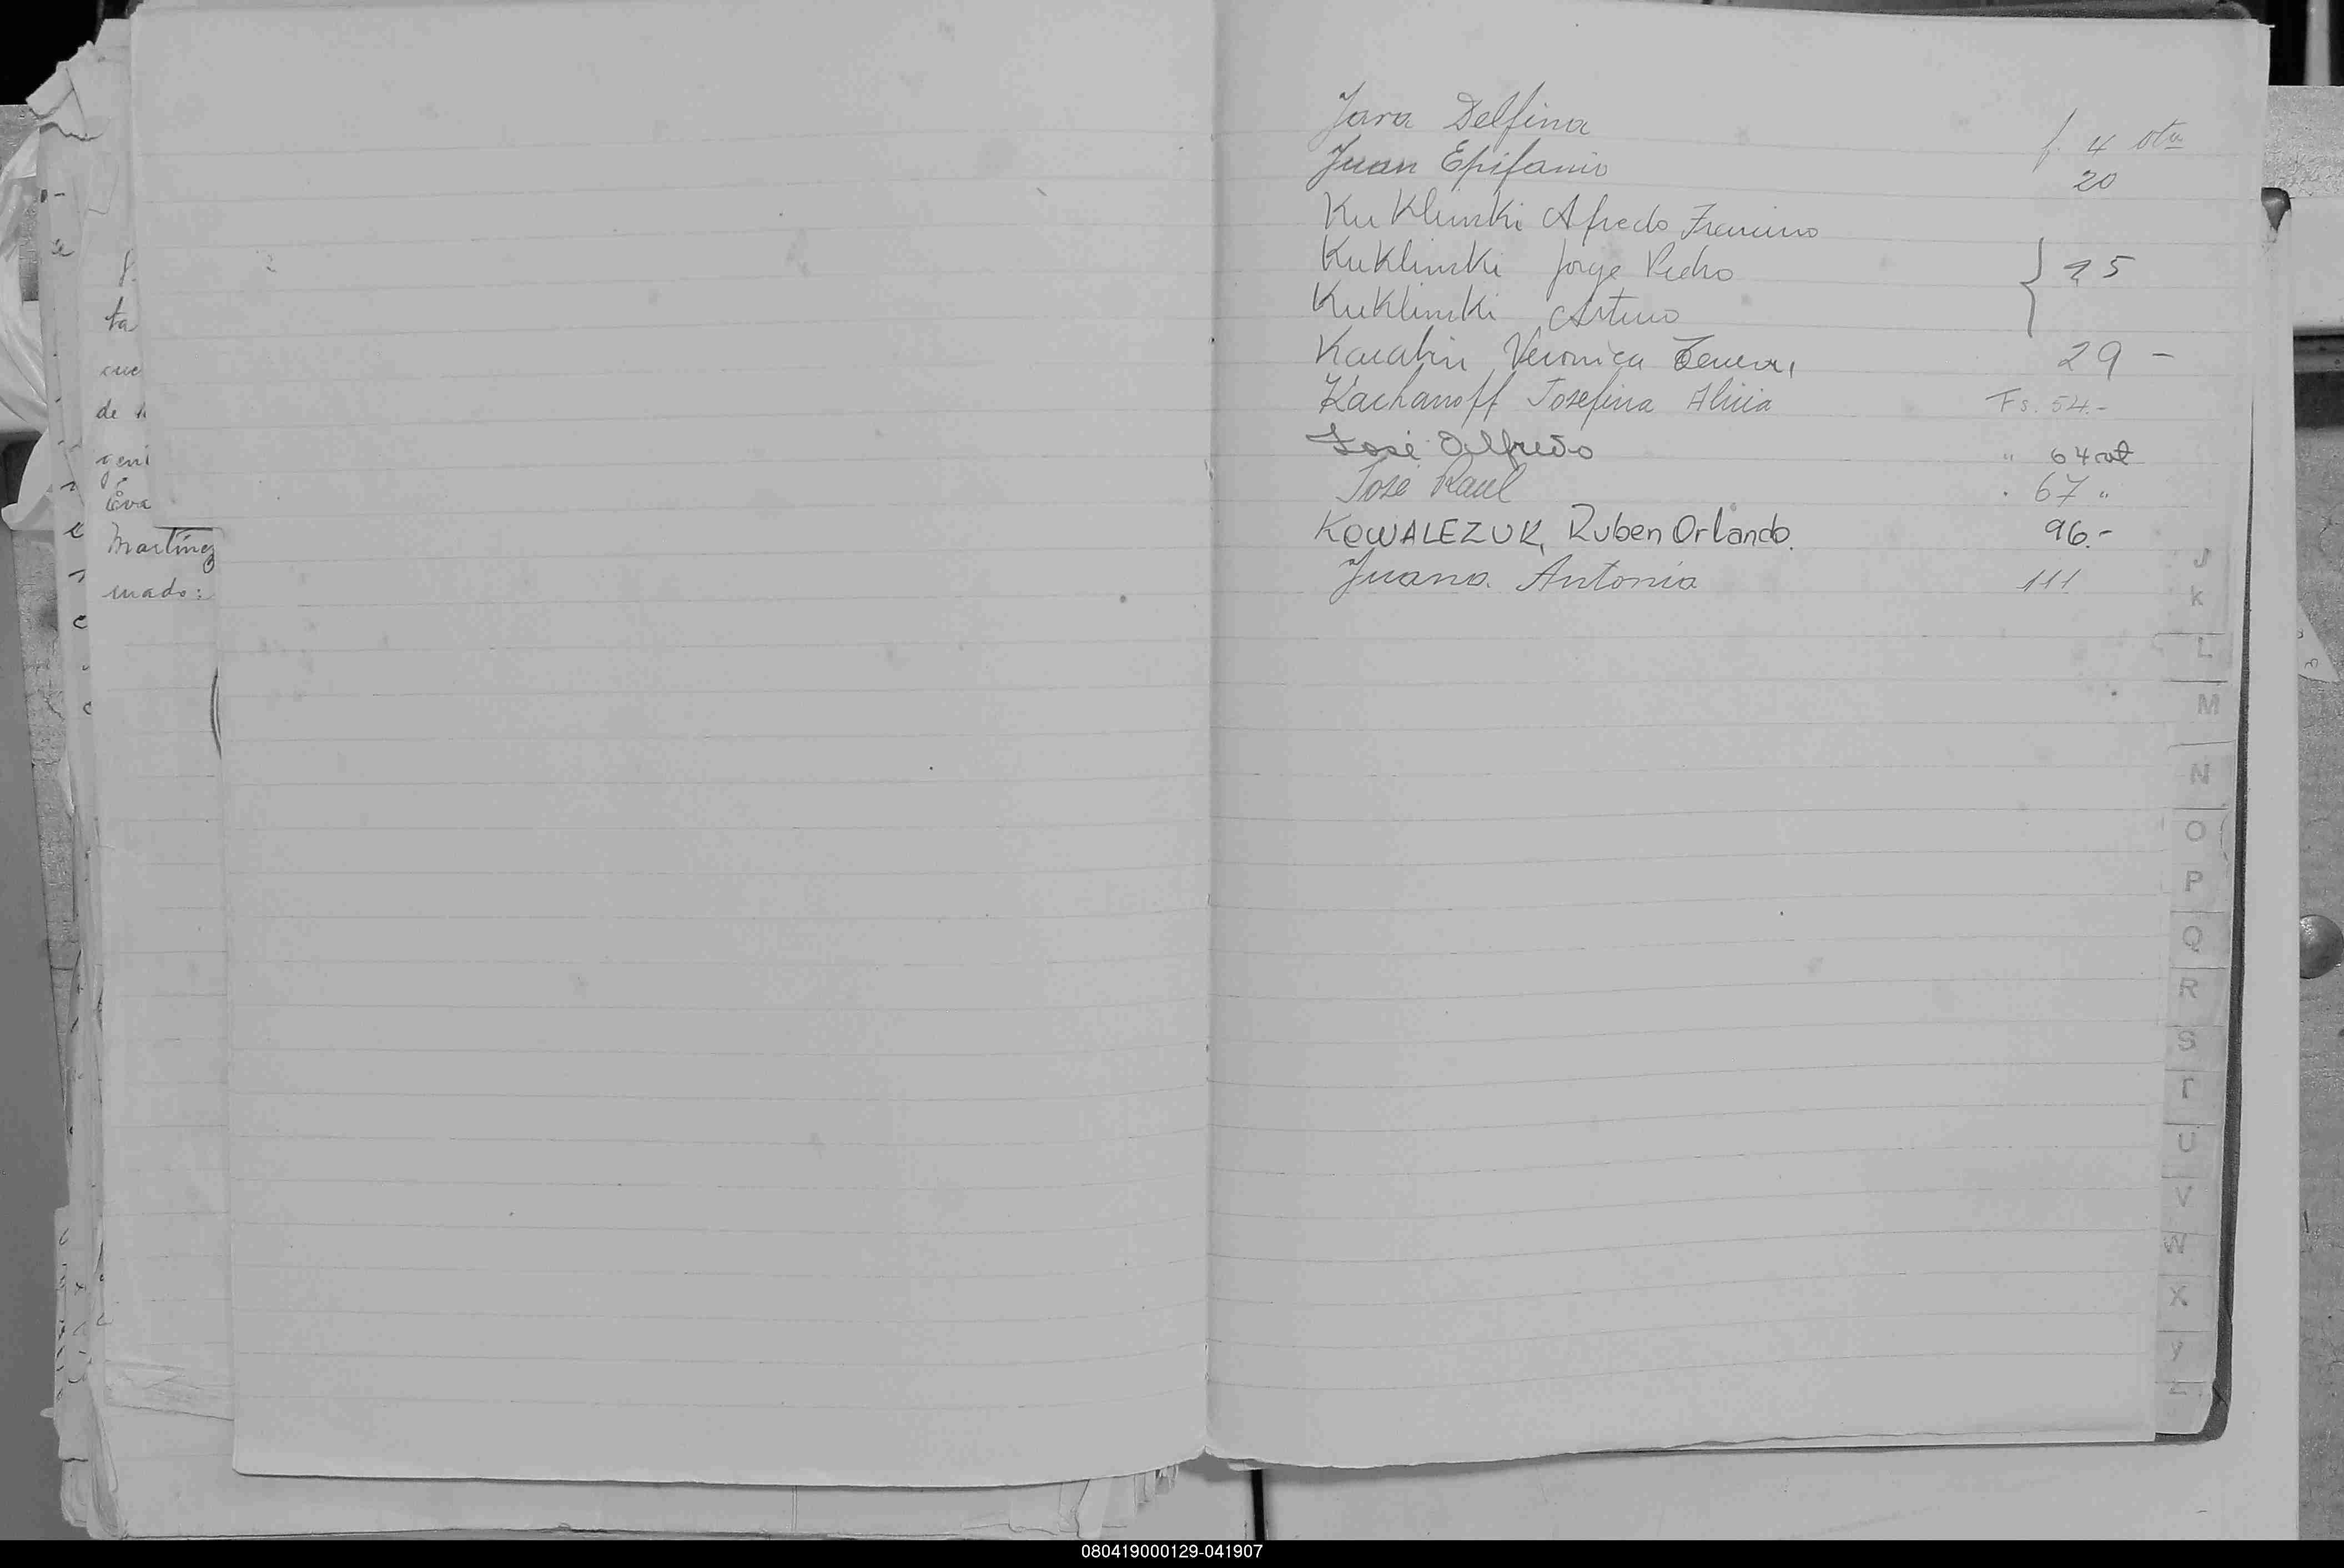 Jara Delfina f. 4 vta
Juan Epifanio 20
KuKlinski Alfredo Francisco
KuKlinski Jorge Pedro } 25
KuKlinski Arturo
Karabin Veronica 29 -
Kachanoff Josefina Alicia Fs. 54.-
José Alfredo " 64 vt
José Raul " 67 "
KOWALEZUK, Ruben Orlando. 96.-
Juana Antonia 111
f.
ta
cue
de
geni
Eva
Martinez
mado:
J
K
L
M
N
O
P
Q
R
S
T
U
V
W
X
y
Z
080419000129-041907